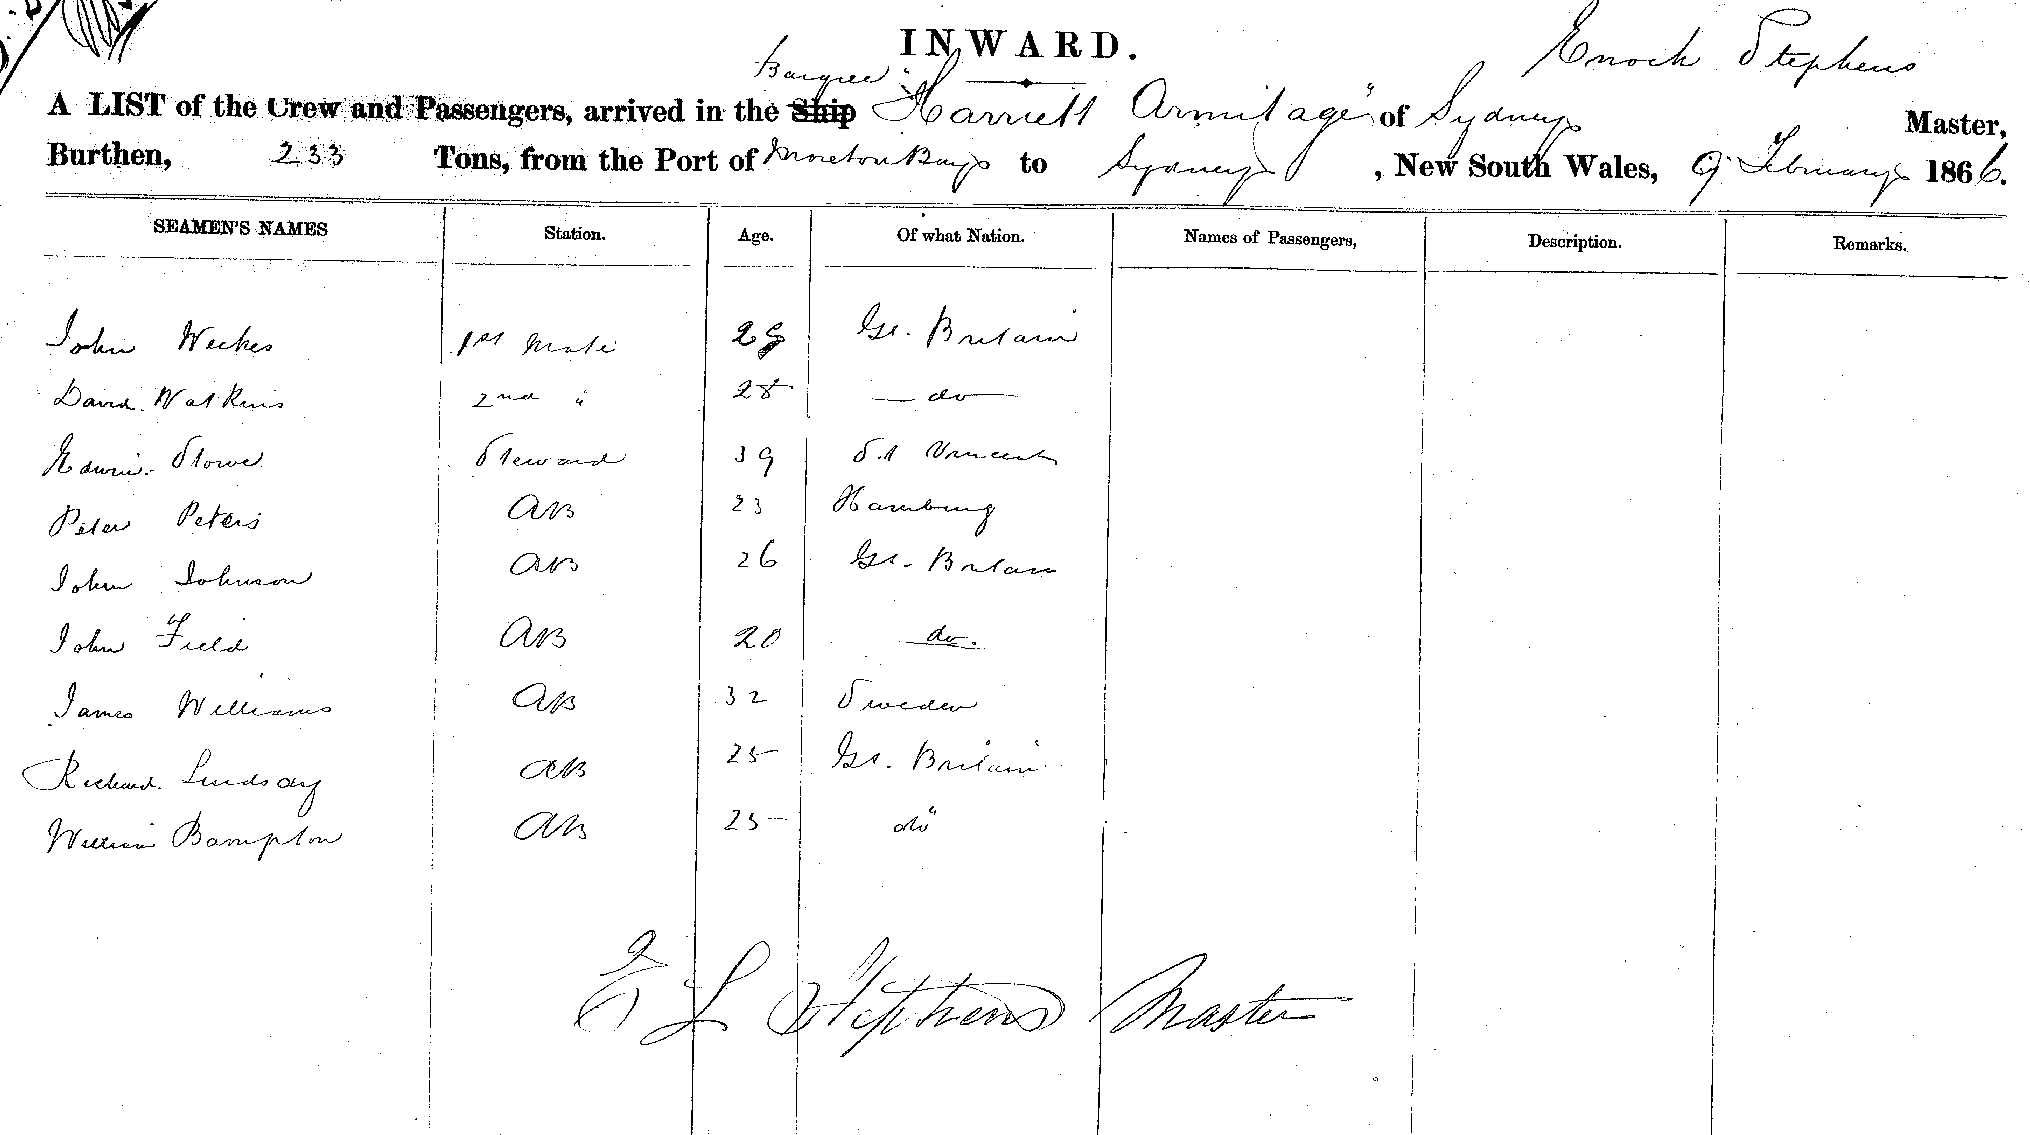 INWARD.
Enoch Stephens
Barque
A LIST of the Crew and Passengers, arrived in the Ship "Harriett Armitage" of Sydney Master,
Burthen, 233 Tons, from the Port of Moreton Bay to Sydney, New South Wales, 9 February 1866.
SEAMEN'S NAMES Station. Age. Of what Nation. Names of Passengers, Description. Remarks.
John Weekes 1st Mate 29 Gt. Britain
David Watkins 2nd " 28 — do —
Edwin Stowe Steward 39 St Vincent
Peter Peters AB 23 Hamburg
John Johnson AB 26 Gt. Britain
John Field AB 20 — do. —
James Williams AB 32 Sweden
Richard Lindsay AB 25 Gt. Britain
William Bampton AB 25 do "
E L Stephens Master